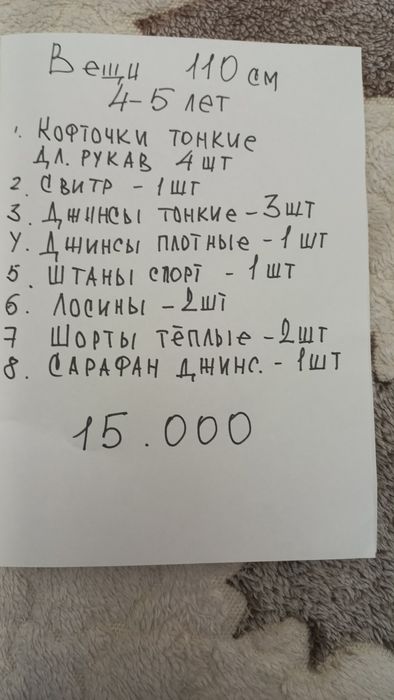 Вещи 110 см
4-5 лет
1. Кофточки тонкие
дл. рукав 4 шт
2. Свитр - 1 шт
3. Джинсы тонкие - 3 шт
4. Джинсы плотные - 1 шт
5. Штаны спорт - 1 шт
6. Лосины - 2 шт
7 Шорты тёплые - 2 шт
8. Сарафан джинс. - 1 шт
15.000